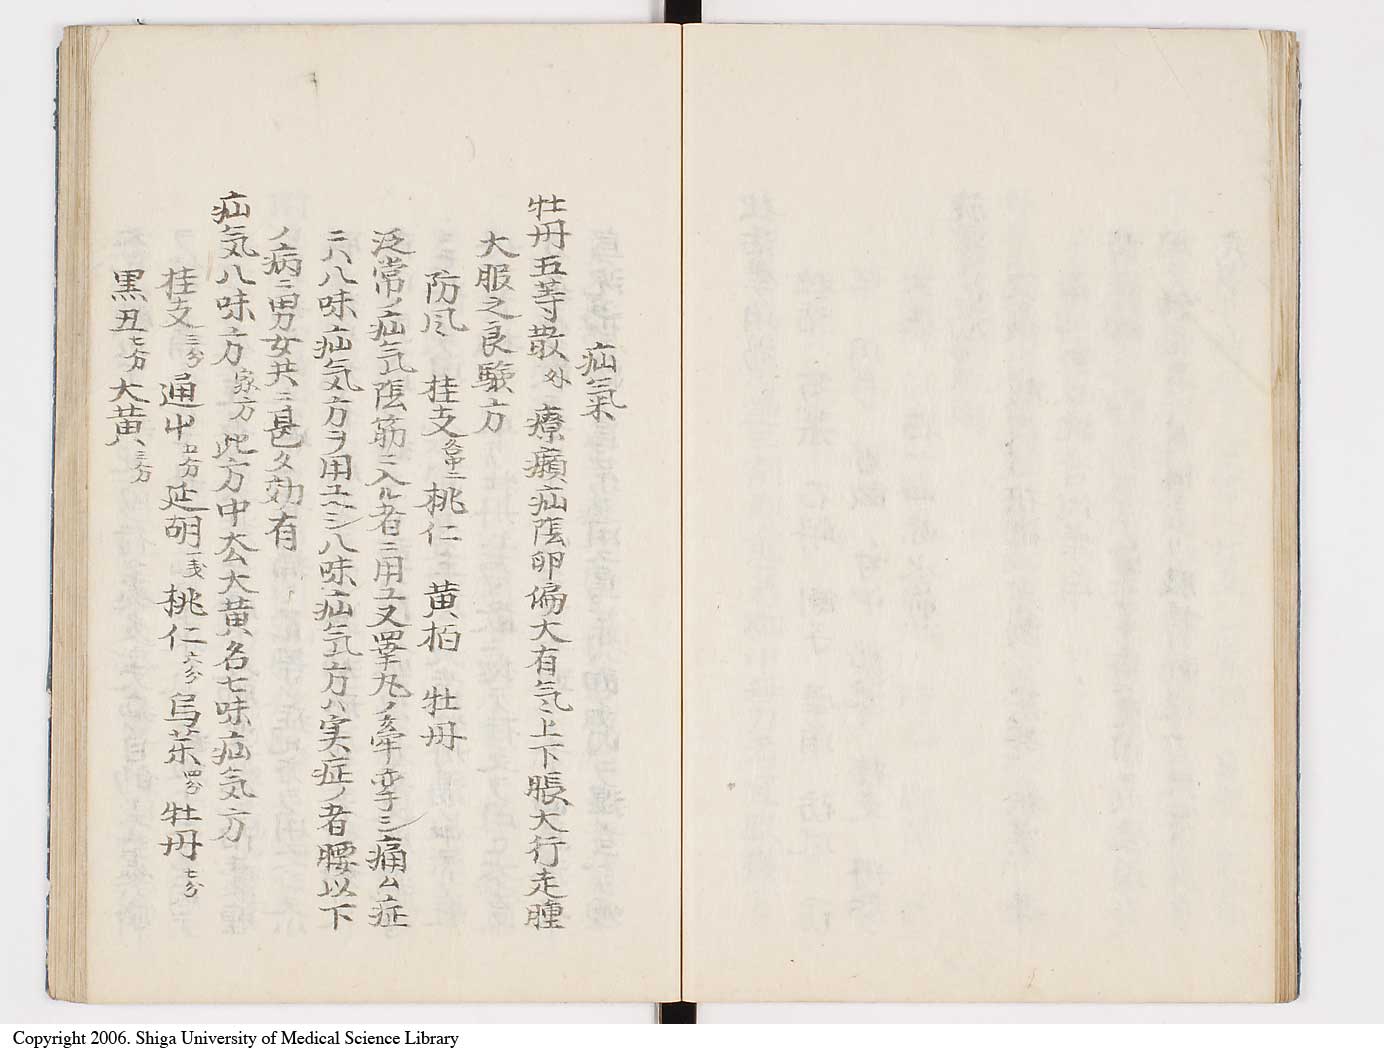 疝氣
牡丹五等散外 療㿗疝陰卵偏大有气上下脹大行走腫
大服之良驗方
防风 桂支各中二 桃仁 黄柏 牡丹
泛常ノ疝气陰筋ニ入ル者ニ用ユ又睾丸ノ牽シ痛ム症
ニハ八味疝気方ヲ用ユヘシ八味疝气方ハ実症ノ者腰以下
ノ病ニ男女共ニ甚タ効有
疝気八味方家方 此方中去大黄名七味疝気方
桂支三分 通中四分 延胡一戋 桃仁六分 烏茱四分 牡丹七分
黒丑七分 大黄三分
Copyright 2006. Shiga University of Medical Science Library